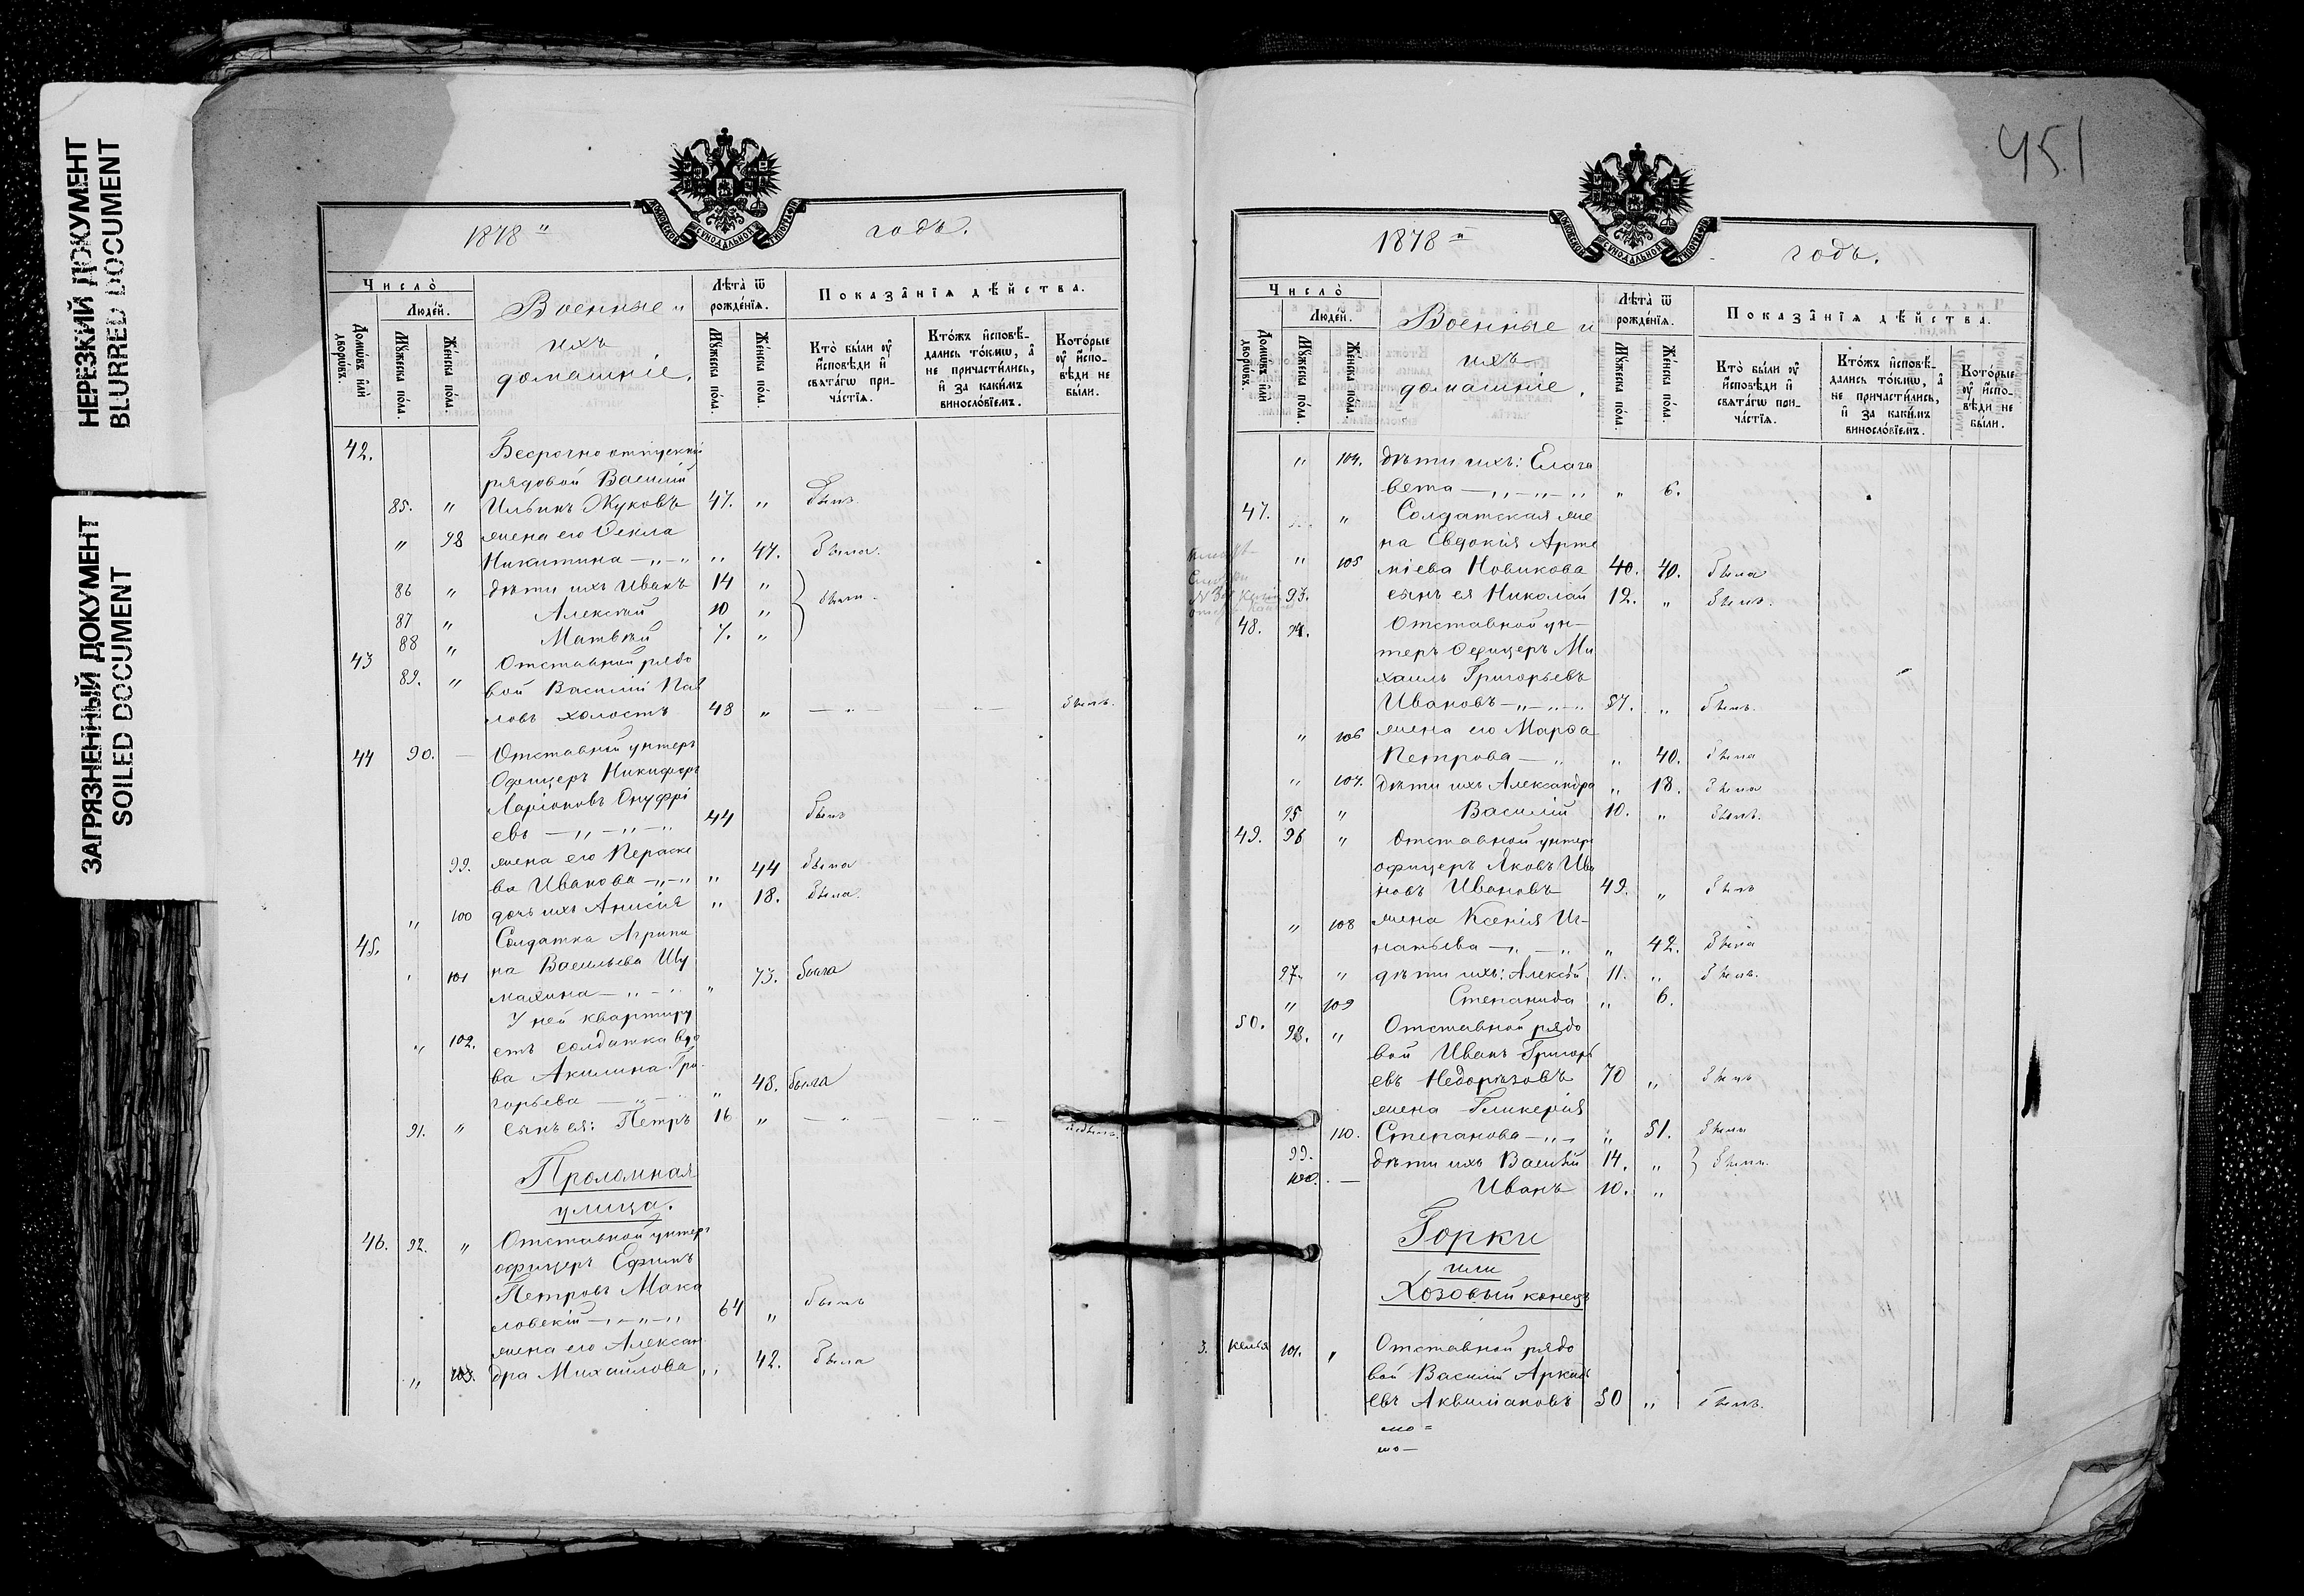 НЕРЕЗКИЙ ДОКУМЕНТ
BLURRED DOCUMENT
ЗАГРЯЗНЕННЫЙ ДОКУМЕНТ
SOILED DOCUMENT
МОСКОВСКОЙ СѴНОДАЛЬНОЙ ТИПОГРАФІИ
1878 й годъ.
Число̀
Людей.
Домѡвъ и҆лѝ дворѡвъ.
Мꙋжеска пола.
Женска пола.
Военные и
ихъ
домашніе.
Лѣта̀ ѿ рожденїѧ.
Мꙋжеска пола.
Женска пола.
Показанїѧ дѣйства.
Кто̀ были ᲂу҆ и҆сповѣди и҆ свѧтагѡ причастїѧ.
Ктожъ и҆сповѣдались токмѡ, а҆ не причастились, и҆ за какимъ винословїемъ.
Которые ᲂу҆ и҆сповѣди не были.
42. Безсрочно отпускной
рядовой Василій
85. " Ильинъ Жуковъ 47. " былъ
" 98 жена его Ѳекла
Никитина — " — " " 47. была.
86 " дѣти ихъ Иванъ 14 "
87 " Алексѣй 10 " } были.
88 " Матвѣй 7. "
43 Отставной рядо
89. " вой Василій Пав
ловъ холостъ 48 " — " — — " — былъ.
44 90. — Отставной унтеръ
Офицеръ Никифоръ
Ларіоновъ Онуфрі
евъ — " — " — " 44 былъ
99. жена его Параске
ва Иванова — " — " " 44 была
" 100 дочь ихъ Анисія " 18. была.
45. Солдатка Агрипи
" 101 на Васильева Шу
махина — " — " " 73. была
У ней квартиру
" 102. етъ солдатка вдо
ва Акилина Гри
горьева — " — " 48. была
91. " сынъ ея: Петръ 16 " — " — — " —
Проломная
улица.
46. 92. " Отставной унтеръ
офицеръ Ефимъ
Петровъ Мака
ловскій — " — " — " 64 " былъ
жена его Алексан
" 103. дра Михайлова " 42. была
451
МОСКОВСКОЙ СѴНОДАЛЬНОЙ ТИПОГРАФІИ
1878 й годъ.
Число̀
Людей.
Домѡвъ и҆лѝ дворѡвъ.
Мꙋжеска пола.
Женска пола.
Военные и
ихъ
домашніе.
Лѣта̀ ѿ рожденїѧ.
Мꙋжеска пола.
Женска пола.
Показанїѧ дѣйства.
Кто̀ были ᲂу҆ и҆сповѣди и҆ свѧтагѡ причастїѧ.
Ктожъ и҆сповѣдались токмѡ, а҆ не причастились, и҆ за какимъ винословїемъ.
Которые ᲂу҆ и҆сповѣди не были.
" 104. дѣти ихъ: Елиза
вета — " — " — " " 6.
47. " Солдатская же
на Евдокія Арте
" 105 міева Новикова 40. 40. была
93. сынъ ея Николай 12. " былъ.
48. 94. Отставной ун-
теръ Офицеръ Ми
хаилъ Григорьевъ
Ивановъ — " — " — " 57. " былъ.
" 106 жена его Марѳа
Петрова — " " 40. была
" 107. дѣти ихъ Александра " 18. была
95 " Василій 10. " былъ.
49. 96 " Отставной унтеръ
офицеръ Яковъ Ива
новъ Ивановъ 49. " былъ
" 108 жена Ксенія Иг-
натьева — " — " " 42. была
97. " дѣти ихъ: Алексѣй 11. " былъ.
" 109 Степанида " 6.
50. 98. " Отставной рядо
вой Иванъ Григорь
евъ Недорѣзовъ 70 " былъ
жена Гликерія
110. Степанова — " — " 51. была
99. дѣти ихъ Василій 14. " } были.
100. — Иванъ 10. "
Горки
или
Хозовый конецъ
3. келья 101. " Отставной рядо
вой Василій Аркадь
евъ Аквиліановъ 50 " былъ.